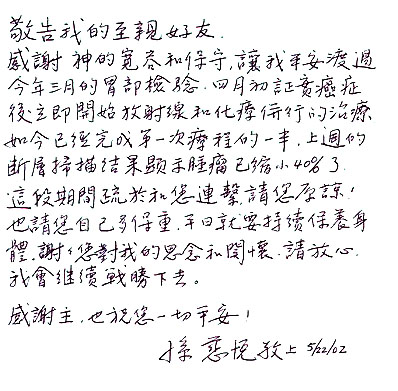 敬告我的至親好友.
感謝 神的寬容和保守,讓我平安渡過
今年三月的胃部檢驗.四月初証實癌症
後立即開始放射線和化療併行的治療
如今已經完成第一次療程的一半,上週的
斷層掃描結果顯示腫瘤已縮小40%了.
這段期間疏於和您連繫請您原諒!
也請您自己多保重,平日就要持續保養身
體.謝謝您對我的思念和関懷.請放心.
我會继續戰勝下去。
感謝主,也祝您一切平安!
孫慈悅敬上 5/22/02